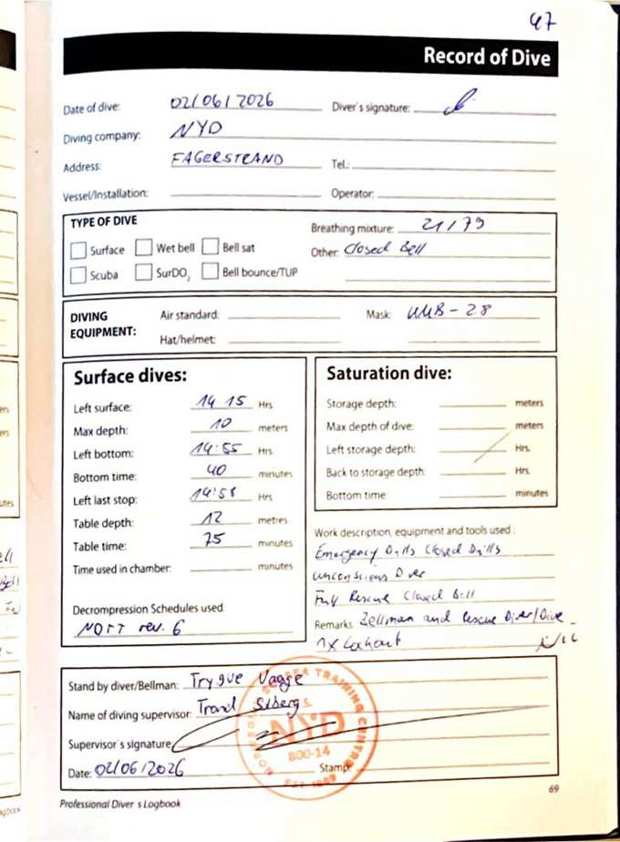 47
Record of Dive
Date of dive: 02/06/2026 Diver's signature:
Diving company: NYD
Address: FAGERSTRAND Tel.:
Vessel/Installation: Operator:
TYPE OF DIVE
Breathing mixture: 21/79
Surface Wet bell Bell sat Other: Closed Bell
Scuba SurDO2 Bell bounce/TUP
DIVING EQUIPMENT:
Air standard: Mask: KMB-28
Hat/helmet:
Surface dives:
Left surface: 14 15 Hrs
Max depth: 10 meters
Left bottom: 14:55 Hrs
Bottom time: 40 minutes
Left last stop: 14:58 Hrs
Table depth: 12 metres
Table time: 75 minutes
Time used in chamber: minutes
Decompression Schedules used
NDTT rev. 6
Saturation dive:
Storage depth: meters
Max depth of dive: meters
Left storage depth: Hrs.
Back to storage depth: Hrs.
Bottom time: minutes
Work description, equipment and tools used:
Emergency Drills Closed Drills
Unconscious Diver
Full Rescue Closed Bell
Remarks: Bellman and rescue Diver/Dive
1x Lockout
Stand by diver/Bellman: Trygve Vaage
Name of diving supervisor: Trond
Supervisor's signature
Date: 02/06/2026 Stamp:
NYD
800-14
TRAINING CENTRE
69
Professional Diver s Logbook